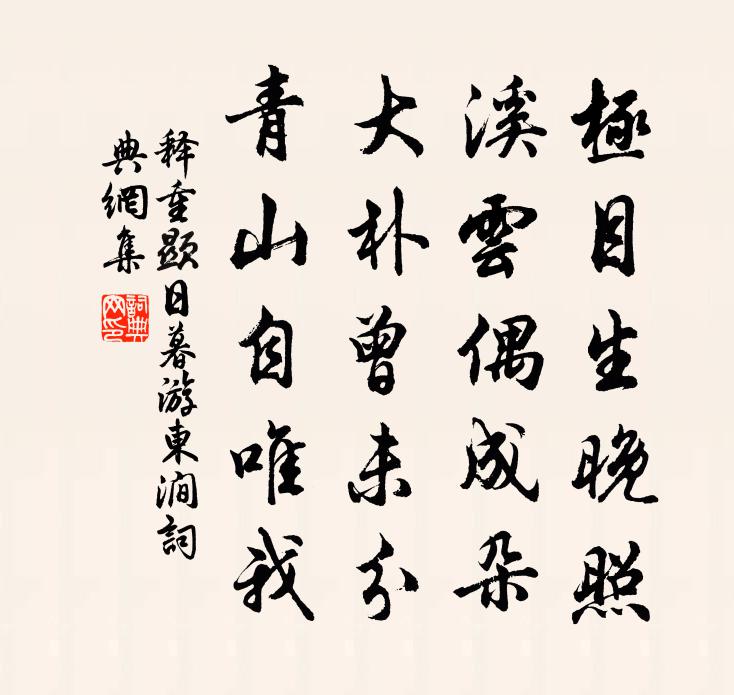 極目生晚照
溪雲偶成朵
大朴曾未分
青山自唯我
释重顯日暮游東澗詞
典網集
詞典网印